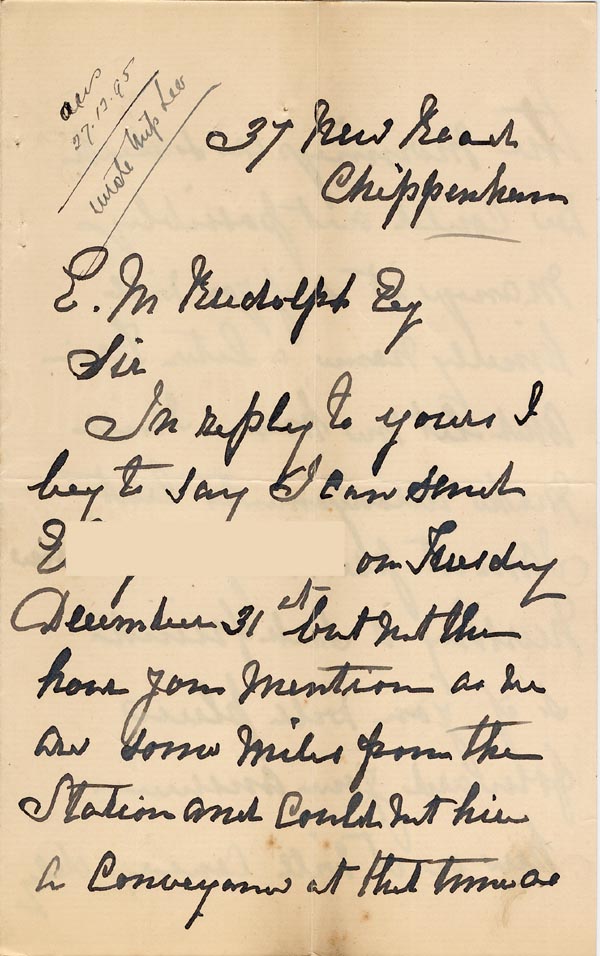 27.12.95
wrote Miss Lee
37 New Road
Chippenham
E. M Rudolph Esq
Sir
In reply to yours I
beg to say I can send
E on Tuesday
December 31st but not the
hour you mention as we
are some miles from the
Station and Could not hire
a Conveyance at that time as